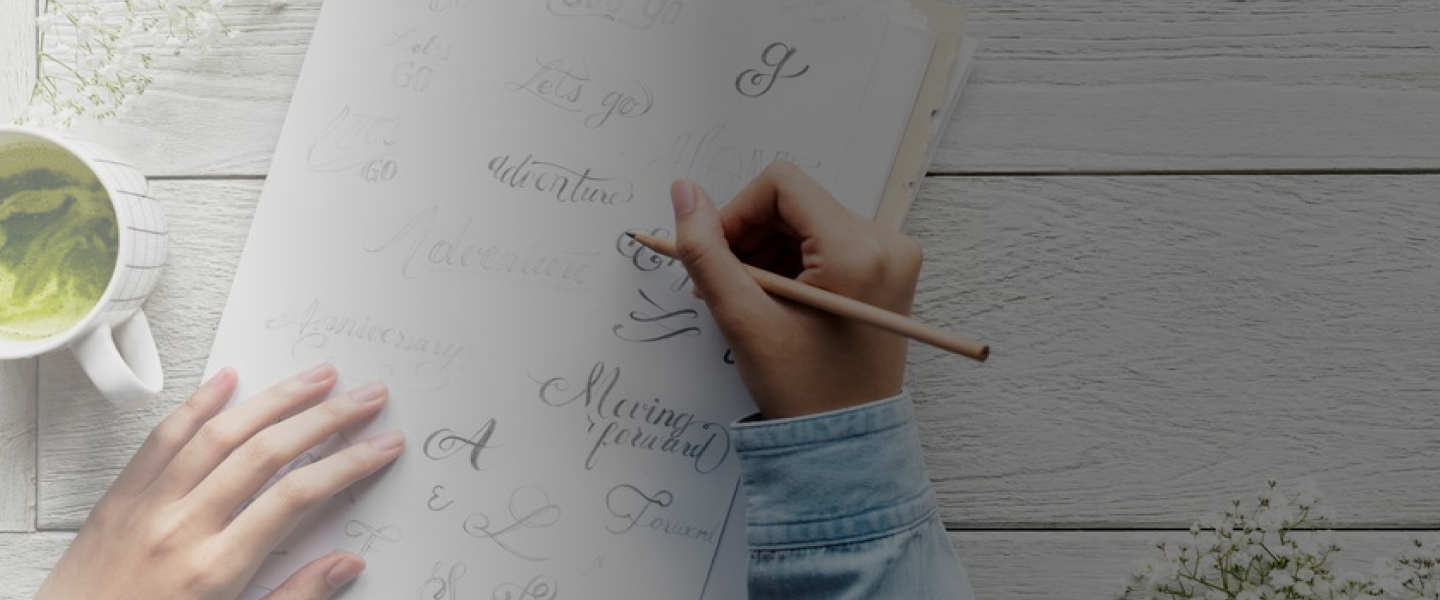 Let's go
Let's
GO
g
Let's go
Let's
GO
adventure
Adventure
Anniversary
Moving
forward
A
&
L
Forward
F